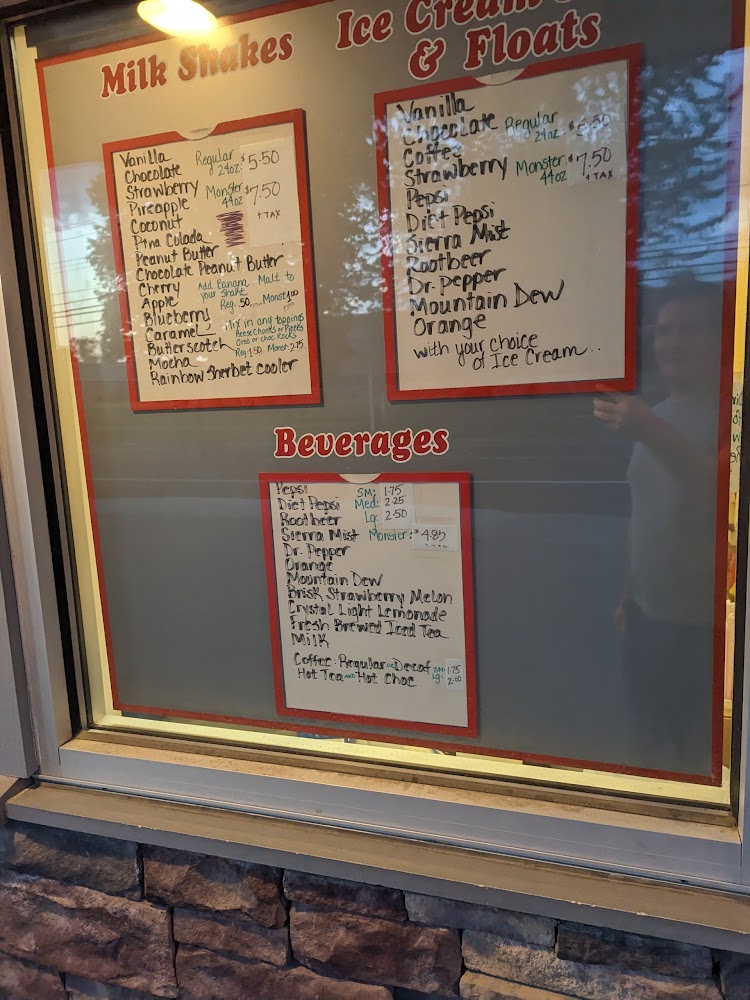 Milk Shakes
Vanilla
Chocolate
Strawberry
Pineapple
Coconut
Pina Colada
Peanut Butter
Chocolate Peanut Butter
Cherry
Apple
Blueberry
Caramel
Butterscotch
Mocha
Rainbow Sherbet cooler
Regular $5.50
24oz.
Monster $7.50
44oz
+ TAX
Add Banana Malt to
your Shake
Reg. 50.... Monst 1.00
Mix in any toppings
Reese Chords or Pieces
Oreo or choc Rocks
Reg: 1.50 Monst: 2.75
Ice Cream
& Floats
Vanilla
Chocolate
Coffee
Strawberry
Pepsi
Diet Pepsi
Sierra Mist
Rootbeer
Dr. Pepper
Mountain Dew
Orange
with your choice
of Ice Cream...
Regular $5.50
24oz.
Monster $7.50
44oz
+ TAX
Beverages
Pepsi
Diet Pepsi
Rootbeer
Sierra Mist
Dr. Pepper
Orange
Mountain Dew
Brisk Strawberry Melon
Crystal Light Lemonade
Fresh Brewed Iced Tea
Milk
SM: 1.75
Med: 2.25
Lg: 2.50
Monster: $4.85
+ TAX
Coffee: Regular or Decaf SM: 1.75
Hot Tea and Hot Choc lg: 2.00